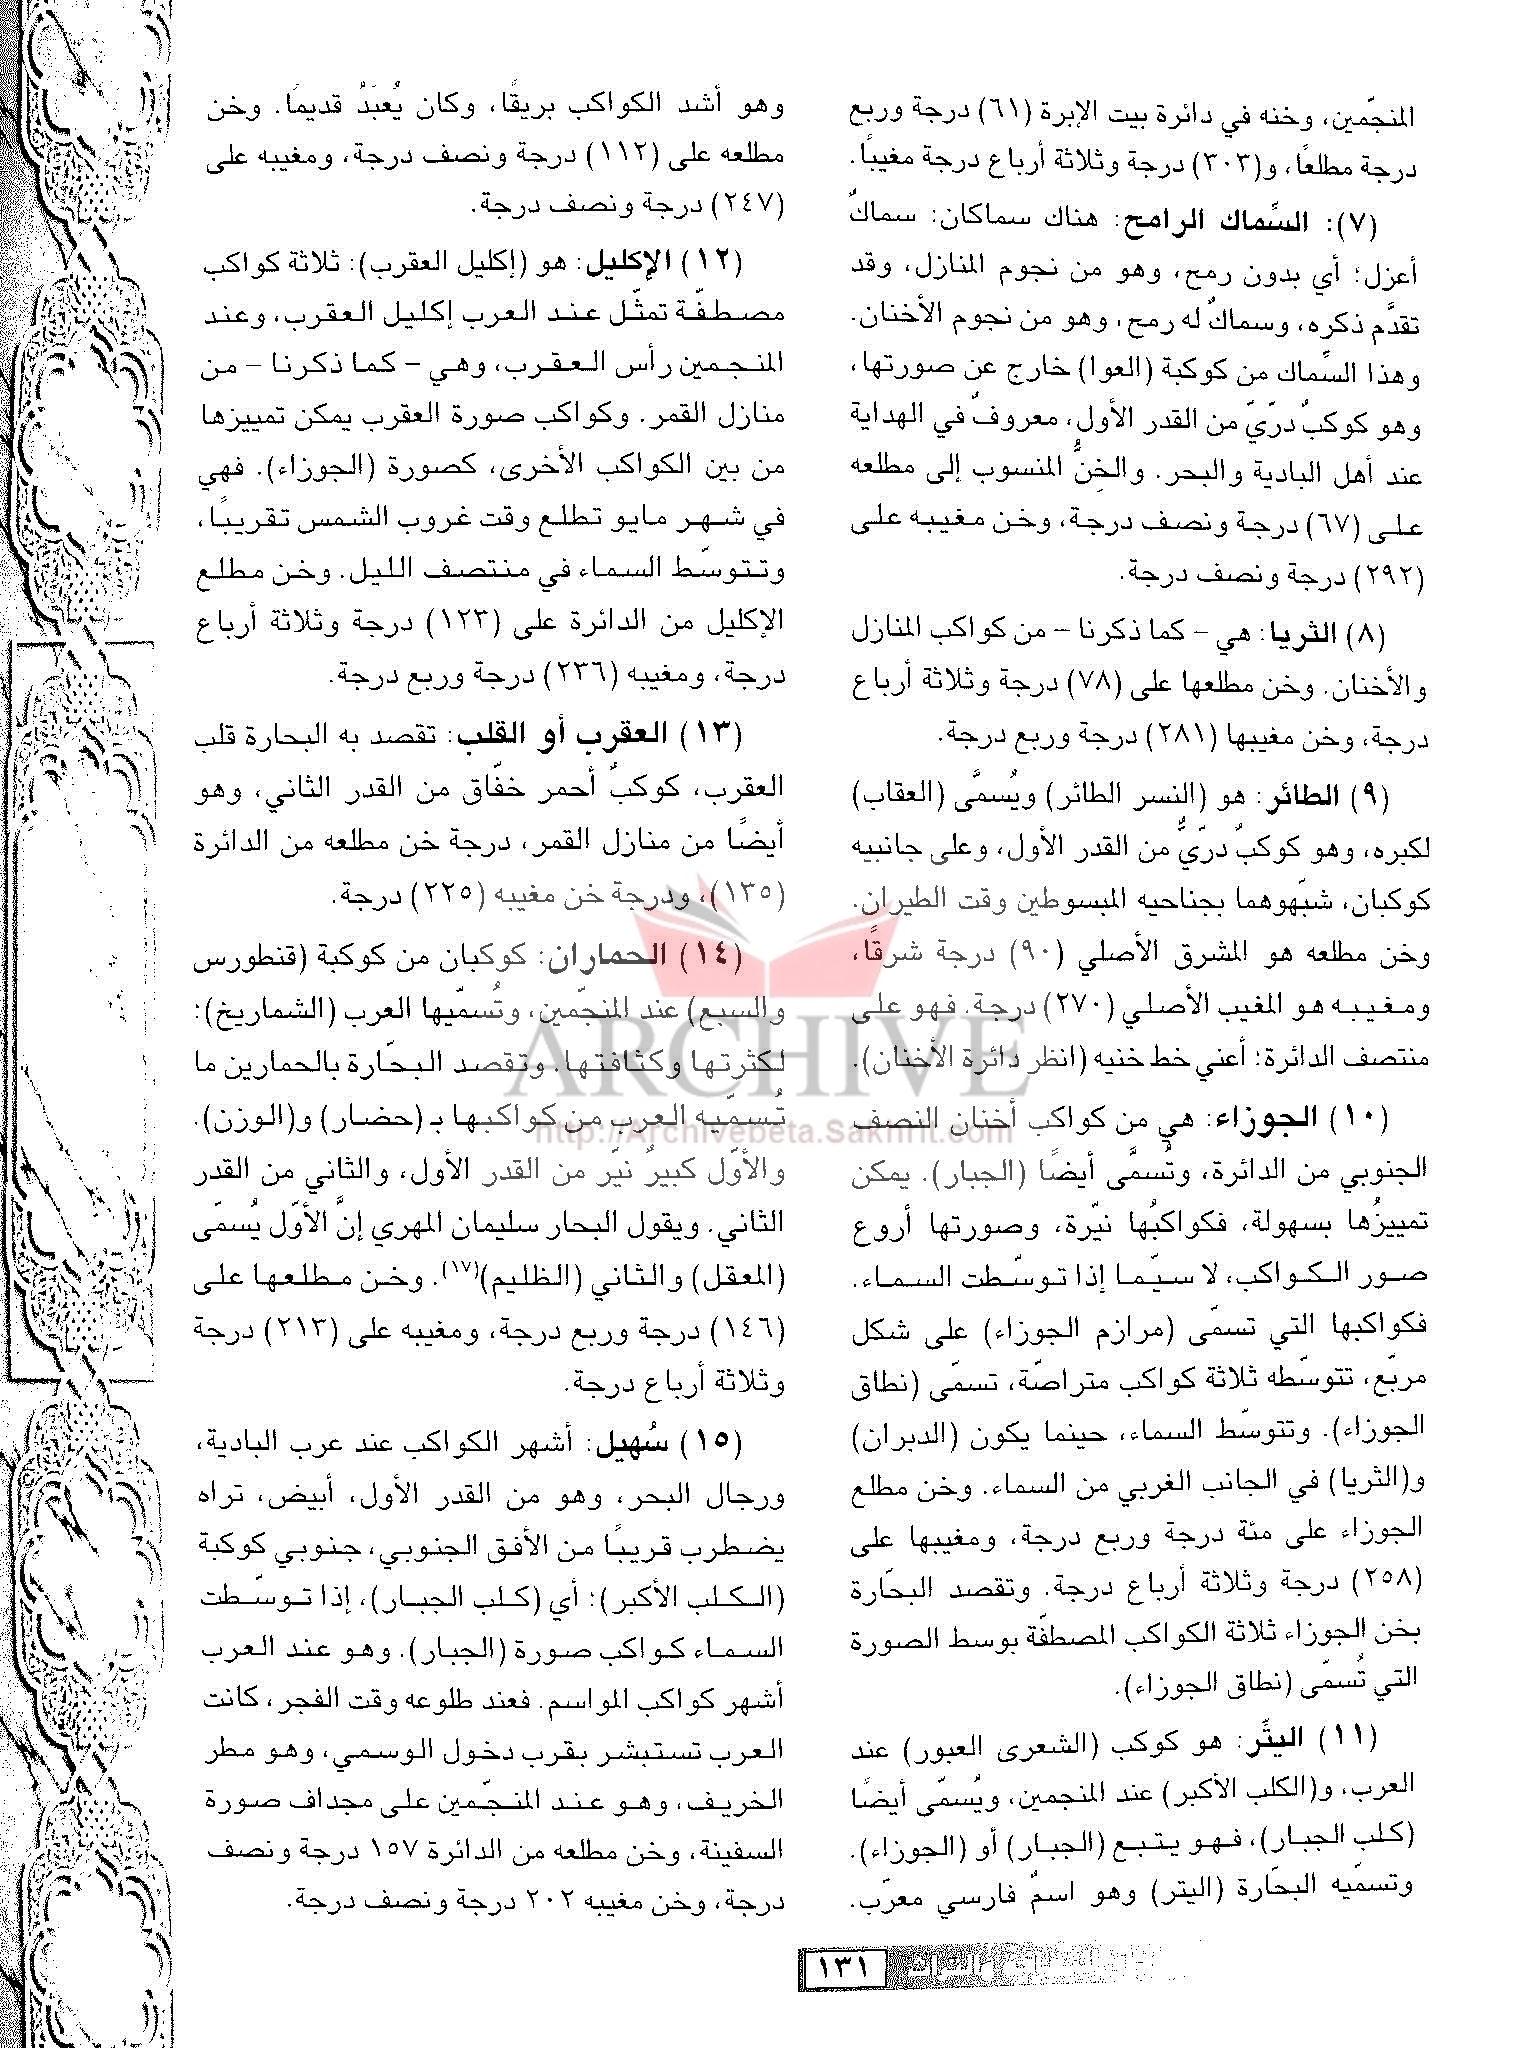 المنجّمين، وخنه في دائرة بيت الإبرة (٦١) درجة وربع
درجة مطلعًا، و(٣٠٣) درجة وثلاثة أرباع درجة مغيبًا.
(٧): السِّماك الرامح: هناك سماكان: سماكٌ
أعزل؛ أي بدون رمح، وهو من نجوم المنازل، وقد
تقدَّم ذكره، وسماكٌ له رمح، وهو من نجوم الأخنان.
وهذا السِّماك من كوكبة (العوا) خارج عن صورتها،
وهو كوكبٌ درّيّ من القدر الأول، معروفٌ في الهداية
عند أهل البادية والبحر. والخِنُّ المنسوب إلى مطلعه
على (٦٧) درجة ونصف درجة، وخن مغيبه على
(٢٩٢) درجة ونصف درجة.
(٨) الثريا: هي – كما ذكرنا – من كواكب المنازل
والأخنان. وخن مطلعها على (٧٨) درجة وثلاثة أرباع
درجة، وخن مغيبها (٢٨١) درجة وربع درجة.
(٩) الطائر: هو (النسر الطائر) ويُسمَّى (العقاب)
لكبره، وهو كوكبٌ درّيٌّ من القدر الأول، وعلى جانبيه
كوكبان، شبّهوهما بجناحيه المبسوطين وقت الطيران.
وخن مطلعه هو المشرق الأصلي (٩٠) درجة شرقًا،
ومغيبه هو المغيب الأصلي (٢٧٠) درجة. فهو على
منتصف الدائرة؛ أعني خط خنيه (انظر دائرة الأخنان).
(١٠) الجوزاء: هي من كواكب أخنان النصف
الجنوبي من الدائرة، وتُسمَّى أيضًا (الجبار). يمكن
تمييزُها بسهولة، فكواكبُها نيّرة، وصورتها أروع
صور الكواكب، لا سيّما إذا توسّطت السماء.
فكواكبها التي تسمّى (مرازم الجوزاء) على شكل
مربّع، تتوسّطه ثلاثة كواكب متراصّة، تسمّى (نطاق
الجوزاء). وتتوسّط السماء، حينما يكون (الدبران)
و(الثريا) في الجانب الغربي من السماء. وخن مطلع
الجوزاء على مئة درجة وربع درجة، ومغيبها على
(٢٥٨) درجة وثلاثة أرباع درجة. وتقصد البحّارة
بخن الجوزاء ثلاثة الكواكب المصطفّة بوسط الصورة
التي تُسمّى (نطاق الجوزاء).
(١١) اليتِّر: هو كوكب (الشعرى العبور) عند
العرب، و(الكلب الأكبر) عند المنجمين، ويُسمّى أيضًا
(كلب الجبار)، فهو يتبع (الجبار) أو (الجوزاء).
وتسمّيه البحّارة (اليتر) وهو اسمٌ فارسي معرّب.
وهو أشد الكواكب بريقًا، وكان يُعبَدُ قديمًا. وخن
مطلعه على (١١٢) درجة ونصف درجة، ومغيبه على
(٢٤٧) درجة ونصف درجة.
(١٢) الإكليل: هو (إكليل العقرب): ثلاثة كواكب
مصطفّة تمثّل عند العرب إكليل العقرب، وعند
المنجمين رأس العقرب، وهي – كما ذكرنا – من
منازل القمر. وكواكب صورة العقرب يمكن تمييزها
من بين الكواكب الأخرى، كصورة (الجوزاء). فهي
في شهر مايو تطلع وقت غروب الشمس تقريبًا،
وتتوسّط السماء في منتصف الليل. وخن مطلع
الإكليل من الدائرة على (١٢٣) درجة وثلاثة أرباع
درجة، ومغيبه (٢٣٦) درجة وربع درجة.
(١٣) العقرب أو القلب: تقصد به البحارة قلب
العقرب، كوكبٌ أحمر خفّاق من القدر الثاني، وهو
أيضًا من منازل القمر، درجة خن مطلعه من الدائرة
(١٣٥)، ودرجة خن مغيبه (٢٢٥) درجة.
(١٤) الحماران: كوكبان من كوكبة (قنطورس
والسبع) عند المنجّمين، وتُسمّيها العرب (الشماريخ):
لكثرتها وكثافتها. وتقصد البحّارة بالحمارين ما
تُسمّيه العرب من كواكبها بـ(حضار) و(الوزن).
والأوّل كبيرٌ نيّر من القدر الأول، والثاني من القدر
الثاني. ويقول البحار سليمان المهري إنَّ الأوّل يُسمّى
(المعقل) والثاني (الظليم)(١٧). وخن مطلعها على
(١٤٦) درجة وربع درجة، ومغيبه على (٢١٣) درجة
وثلاثة أرباع درجة.
(١٥) سُهيل: أشهر الكواكب عند عرب البادية،
ورجال البحر، وهو من القدر الأول، أبيض، تراه
يضطرب قريبًا من الأفق الجنوبي، جنوبي كوكبة
(الكلب الأكبر)؛ أي (كلب الجبار)، إذا توسّطت
السماء كواكب صورة (الجبار). وهو عند العرب
أشهر كواكب المواسم. فعند طلوعه وقت الفجر، كانت
العرب تستبشر بقرب دخول الوسمي، وهو مطر
الخريف، وهو عند المنجّمين على مجداف صورة
السفينة، وخن مطلعه من الدائرة ١٥٧ درجة ونصف
درجة، وخن مغيبه ٢٠٢ درجة ونصف درجة.
ARCHIVE
http://Archivebeta.Sakhrit.com
١٣١